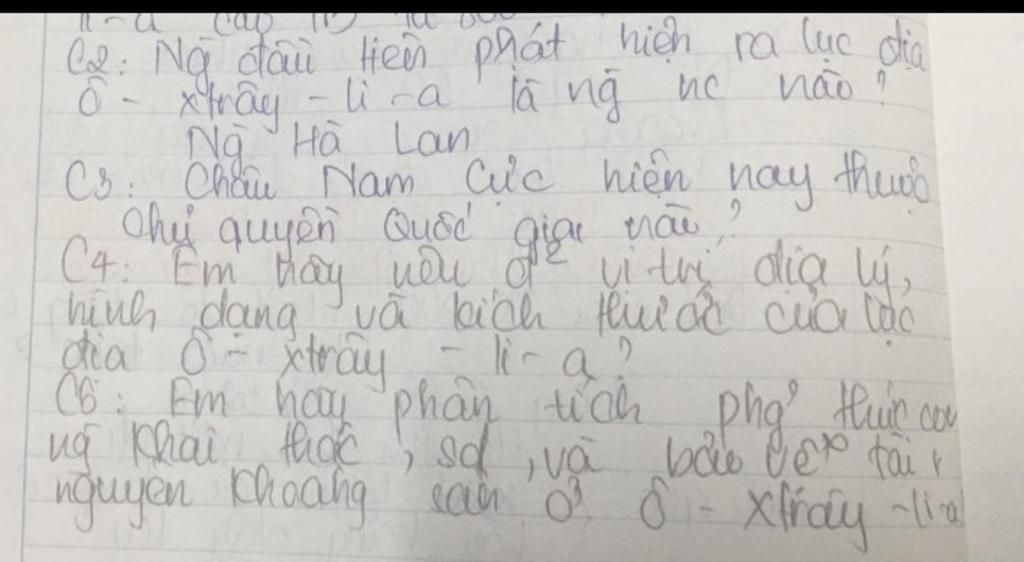 C2: Ng̃ đầu tiên phát hiện ra lục địa
Ô - xtrây - li - a là ng̃ nc nào?
Ng̃ Hà Lan
C3: Châu Nam Cực hiện nay thuộc
chủ quyền Quốc gia nào?
C4: Em hãy nêu đ² vị trí địa lý,
hình dạng và kích thước của lục
địa Ô - xtrây - li - a?
Em hãy phân tích phg² thức con
ng̃ khai thác, sd, và bảo vệ tài
nguyên khoáng sản ở Ô - xtrây - li-a